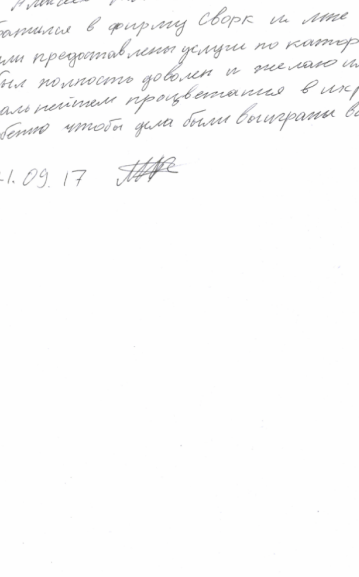 братился в фирму Сворк и мне
или предоставлены услуги по катор
был полность доволен и желаю им
альнейшем процветания в их р
бенно чтобы дела были выиграны в
1.09.17